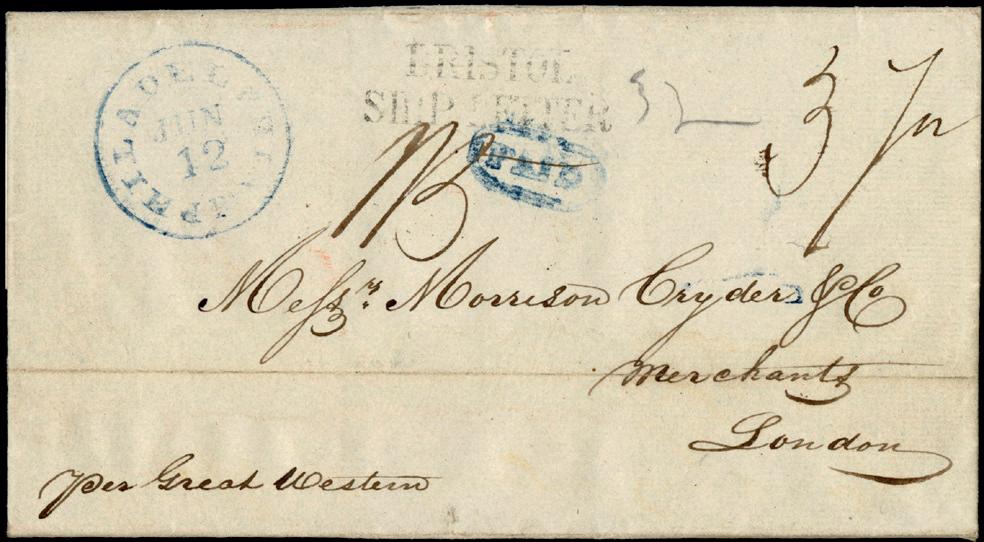 PHILADELPHIA
JUN
12
BRISTOL
SHIP LETTER
32
PAID
Messrs. Morrison Cryder & Co
Merchants
London
per Great Western